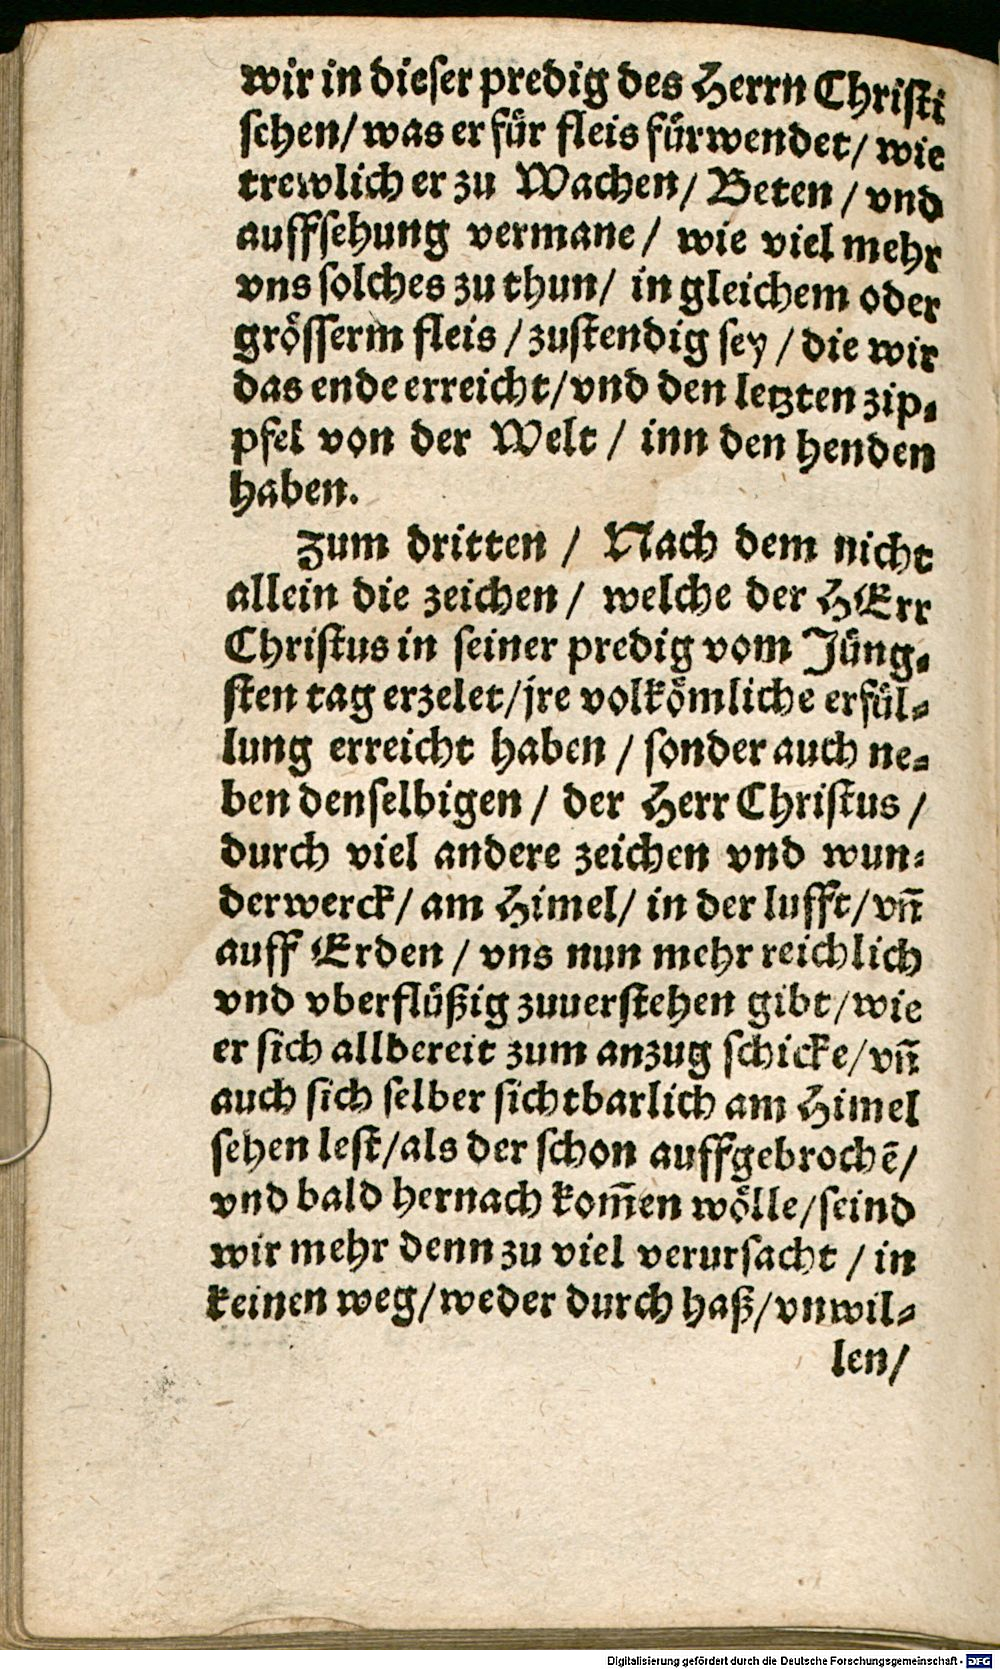 wir in dieser predig des Herrn Christi
sehen/ was er für fleis fürwendet/ wie
trewlich er zu Wachen/ Beten / vnd
auffsehung vermane / wie viel mehr
vns solches zu thun/ in gleichem oder
grösserm fleis / zustendig sey / die wir
das ende erreicht/ vnd den letzten zip⸗
pfel von der Welt / inn den henden
haben.
Zum dritten / Nach dem nicht
allein die zeichen / welche der HErr
Christus in seiner predig vom Jüng⸗
sten tag erzelet/ jre volkömliche erfül⸗
lung erreicht haben / sonder auch ne⸗
ben denselbigen / der Herr Christus /
durch viel andere zeichen vnd wun⸗
derwerck/ am Himel/ in der lufft/ vñ
auff Erden / vns nun mehr reichlich
vnd vberflüßig zuuerstehen gibt/ wie
er sich allbereit zum anzug schicke/ vñ
auch sich selber sichtbarlich am Himel
sehen lest/ als der schon auffgebrochẽ/
vnd bald hernach kom̃en wölle/ seind
wir mehr denn zu viel verursacht / in
keinen weg/ weder durch haß/ vnwil⸗
len/
Digitalisierung gefördert durch die Deutsche Forschungsgemeinschaft - DFG